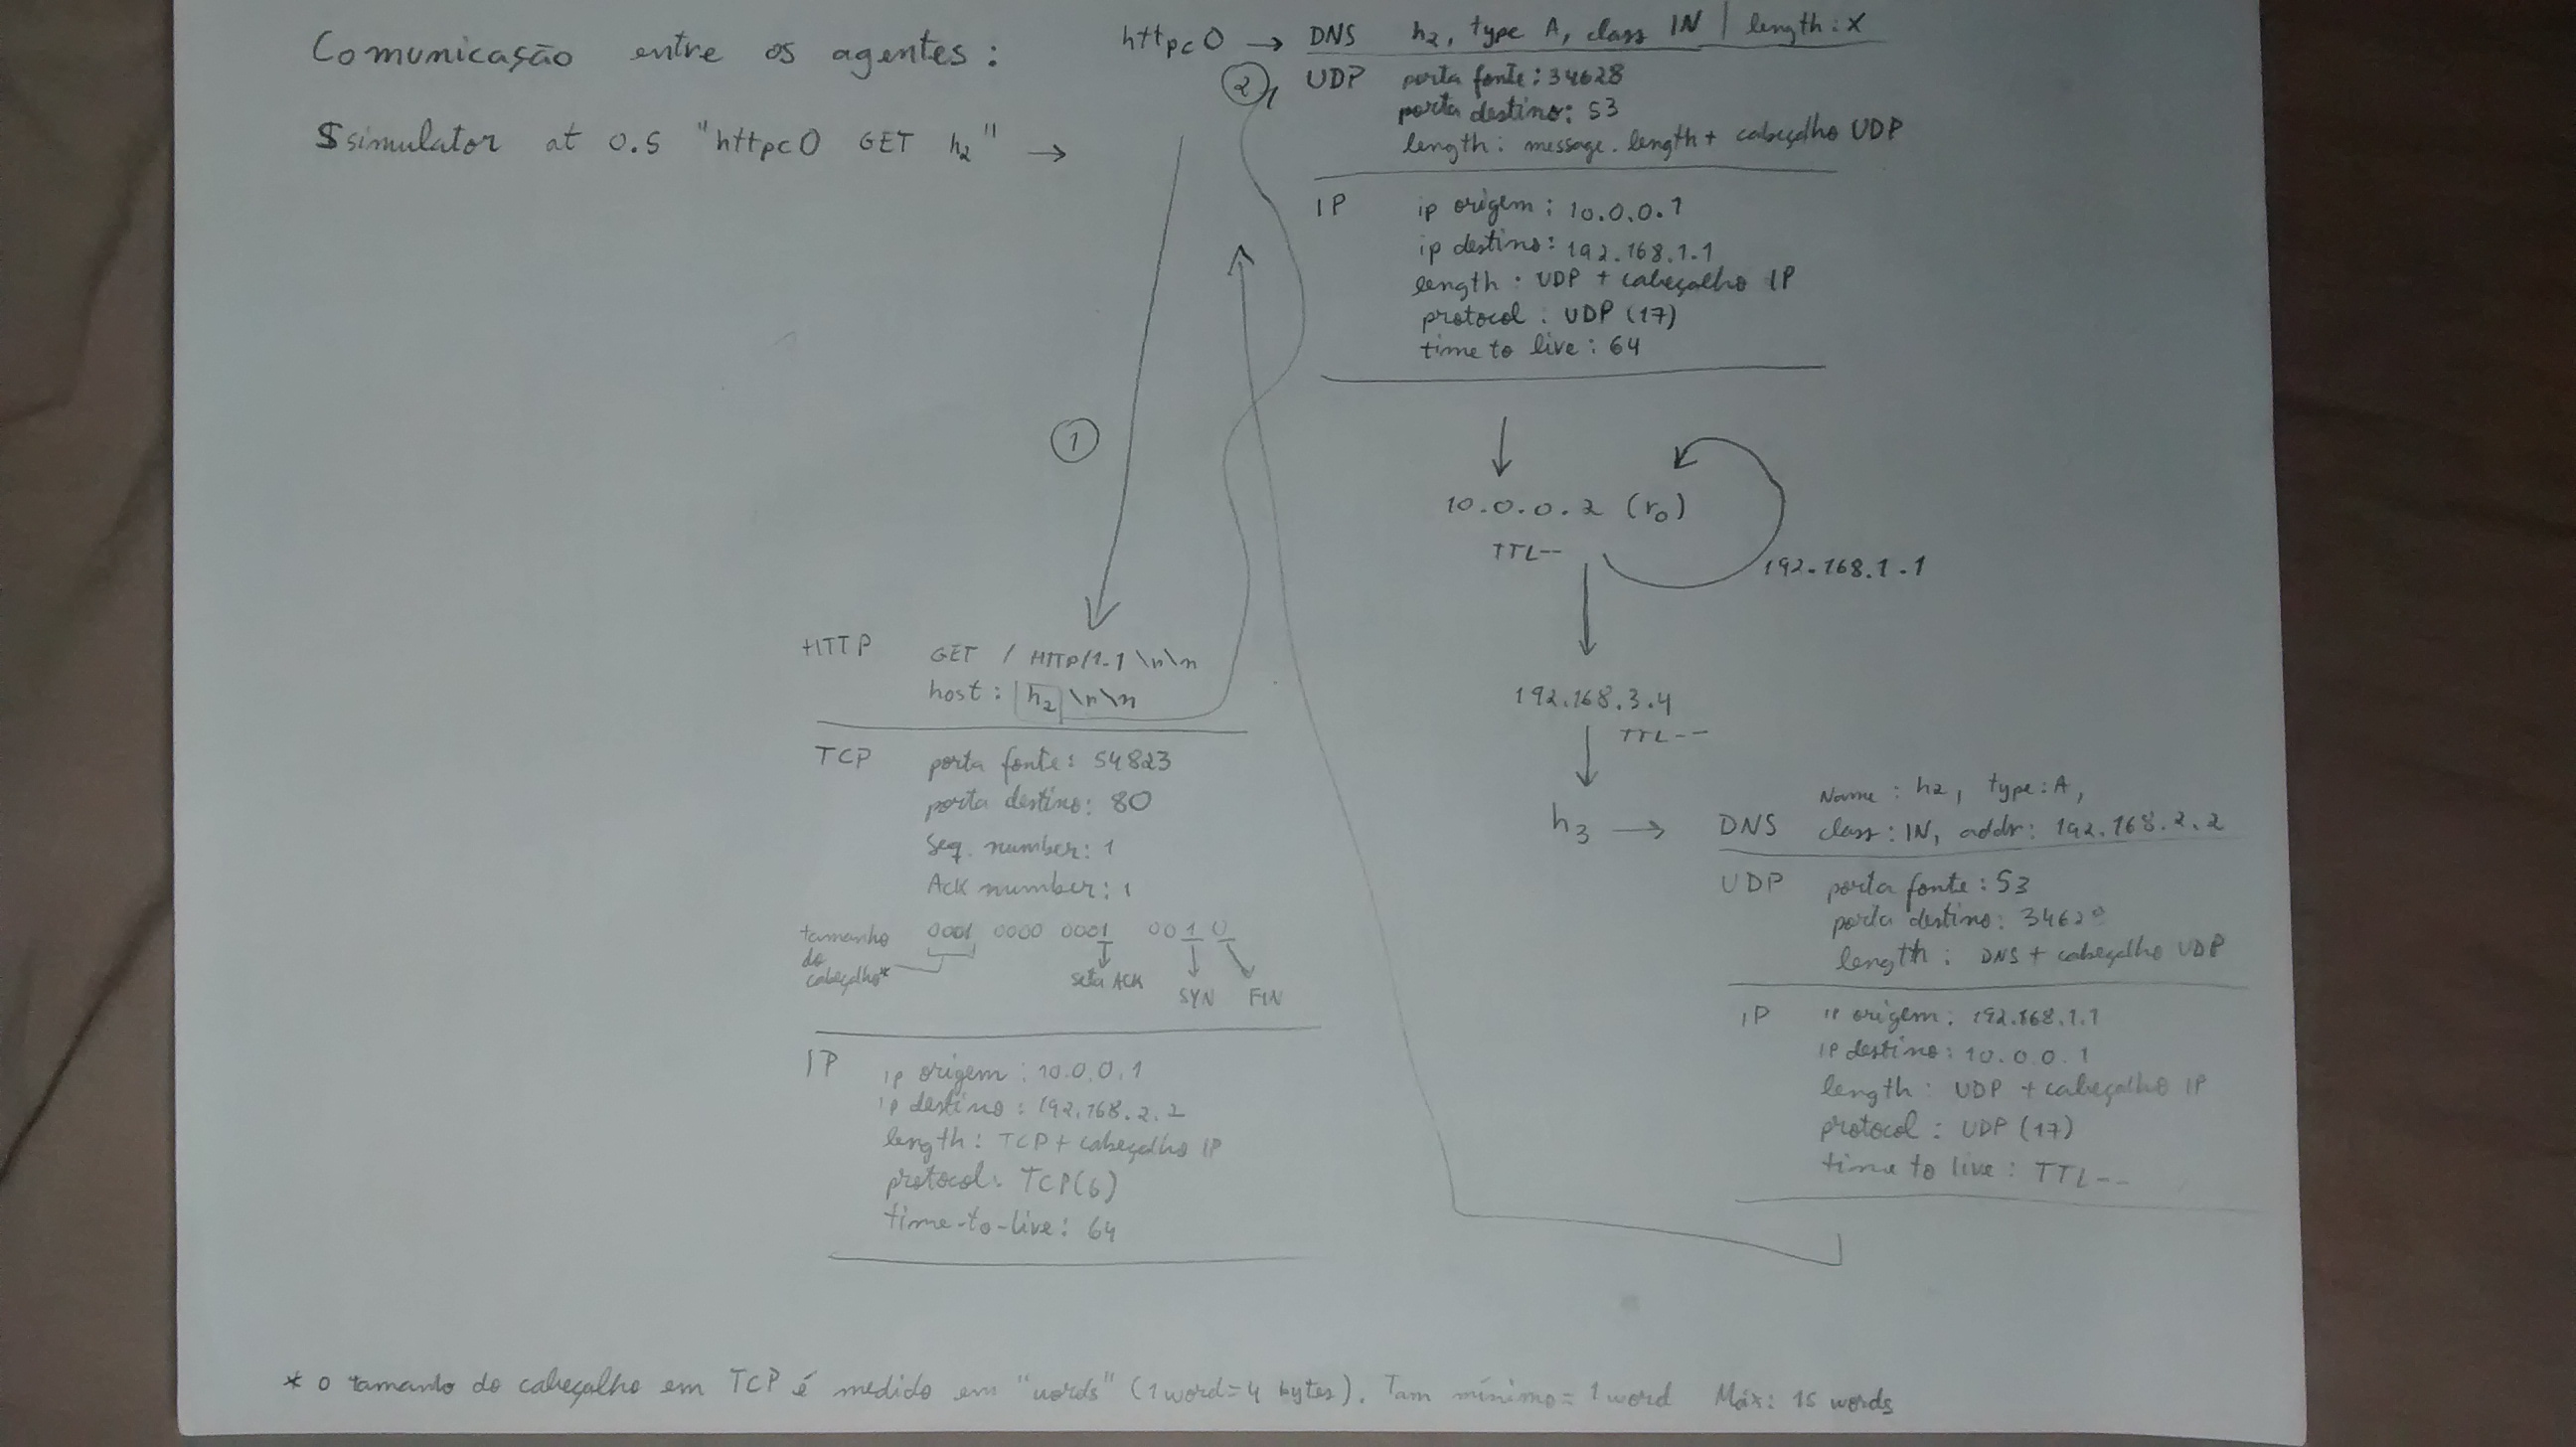 Comunicação entre os agentes:
$simulator at 0.5 "httpc0 GET h2" →
httpc0 → DNS h2, type A, class IN | length: X
2
UDP porta fonte: 34628
porta destino: 53
length: message.length + cabeçalho UDP
IP ip origem: 10.0.0.1
ip destino: 192.168.1.1
length: UDP + cabeçalho IP
protocol: UDP (17)
time to live: 64
1
10.0.0.2 (r0)
TTL--
192.168.1.1
192.168.3.4
TTL--
h3 → DNS Name: h2, type: A,
class: IN, addr: 192.168.2.2
UDP porta fonte: 53
porta destino: 34628
length: DNS + cabeçalho UDP
IP IP origem: 192.168.1.1
IP destino: 10.0.0.1
length: UDP + cabeçalho IP
protocol: UDP (17)
time to live: TTL--
HTTP GET / HTTP/1.1 \r\n
host: h2 \r\n
TCP porta fonte: 54823
porta destino: 80
Seq. number: 1
Ack number: 1
tamanho do cabeçalho* 0001 0000 0001 0010
seta ACK SYN FIN
IP ip origem: 10.0.0.1
ip destino: 192.168.2.2
length: TCP + cabeçalho IP
protocol: TCP(6)
time-to-live: 64
* o tamanho do cabeçalho em TCP é medido em "words" (1 word = 4 bytes). Tam mínimo = 1 word Máx: 15 words